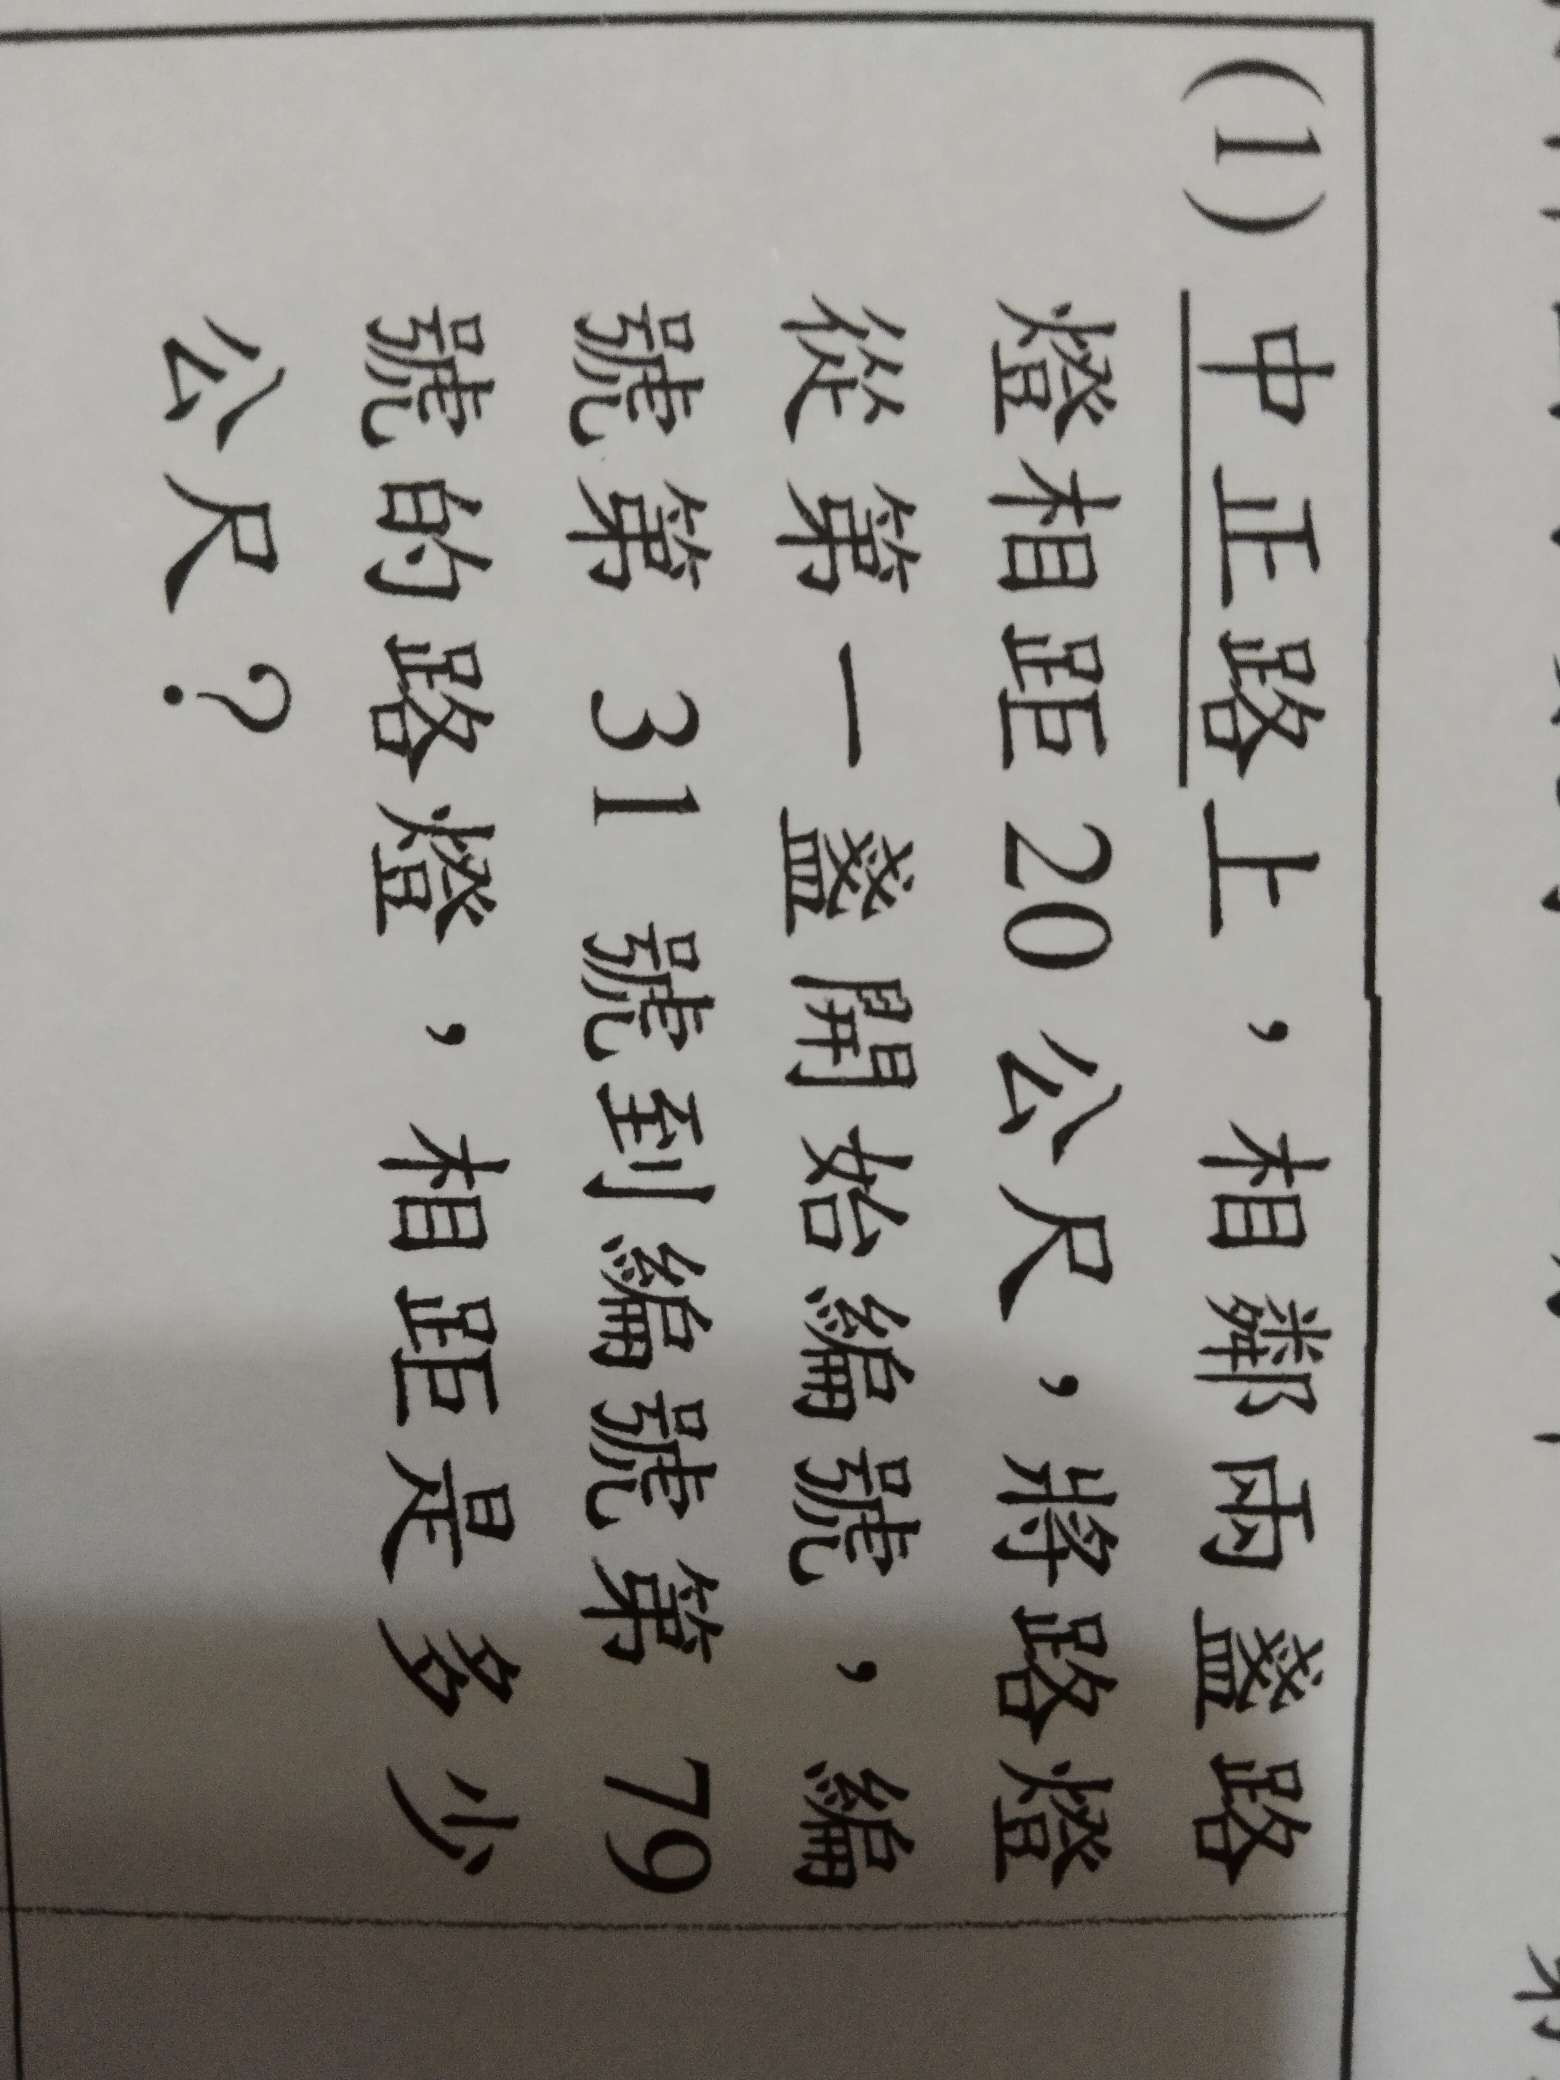 (1) 中正路上，相鄰兩盞路
燈相距 20 公尺，將路燈
從第一盞開始編號，編
號第 31 號到編號第 79
號的路燈，相距是多少
公尺？